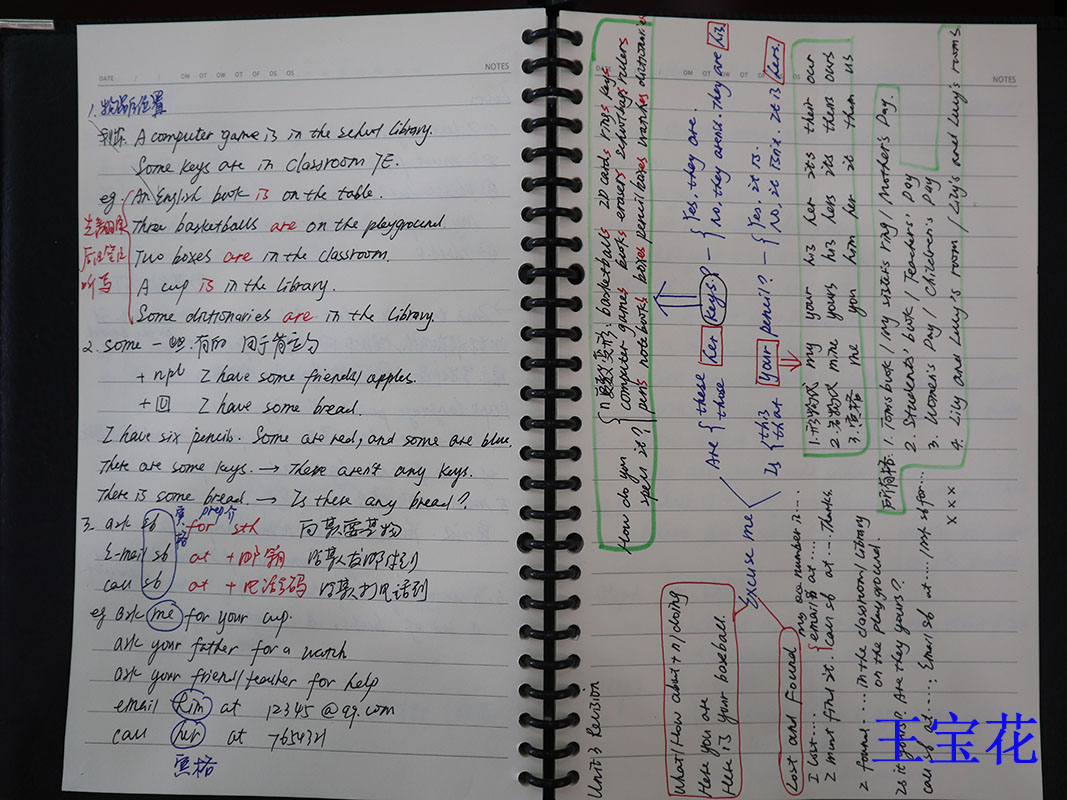 DATE / / OM OT OW OT OF OS OS NOTES
1. 物品的位置
A computer game is in the school library.
Some keys are in Classroom 7E.
eg. An English book is on the table.
Three basketballs are on the playground
Two boxes are in the classroom.
A cup is in the library.
Some dictionaries are in the library.
2. some 一些.有的 用于肯定句
+ npl I have some friends/apples.
+ [U] I have some bread.
I have six pencils. Some are red, and some are blue.
There are some keys. → There aren't any keys.
There is some bread. → Is there any bread?
3. ask sb for sth 向某人要某物
宾格 prep 介
E-mail sb at + 邮箱 给某人发邮件到
call sb at + 电话号码 给某人打电话到
eg ask me for your cup.
ask your father for a watch
ask your friend/teacher for help
email him at 12345@qq.com
call her at 7654321
宾格
NOTES
Unit 3 Revision
What/How about + n/doing
Here you are
Here is your baseball.
Excuse me
Are these those her keys? — Yes. they are. No. they aren't. they are his
Is this that your pencil? — Yes. it is. No. it isn't. it is hers.
How do you spell it?
n 复数变形: basketballs ID cards rings keys
computer games books erasers schoolbags rulers
pens notebooks boxes pencil boxes watches dictionaries
1. 形物代 my your his her its their our
2. 名物代 mine yours his hers its theirs ours
3. 宾格 me you him her it them us
所有格: 1. Tom's book / my sister's ring / Mother's Day.
2. Students' book / Teachers' Day
3. Women's Day / Children's Day
4. Lily and Lucy's room / Lily's and Lucy's rooms.
xxx
Lost and Found
I lost.... my number is...
I must find it. email at....
call sb at.... Thanks.
I found...... in the classroom/library
on the playground.
Is it yours? Are they yours?
call sb at....; Email sb at.... /ask sb for...
王宝花